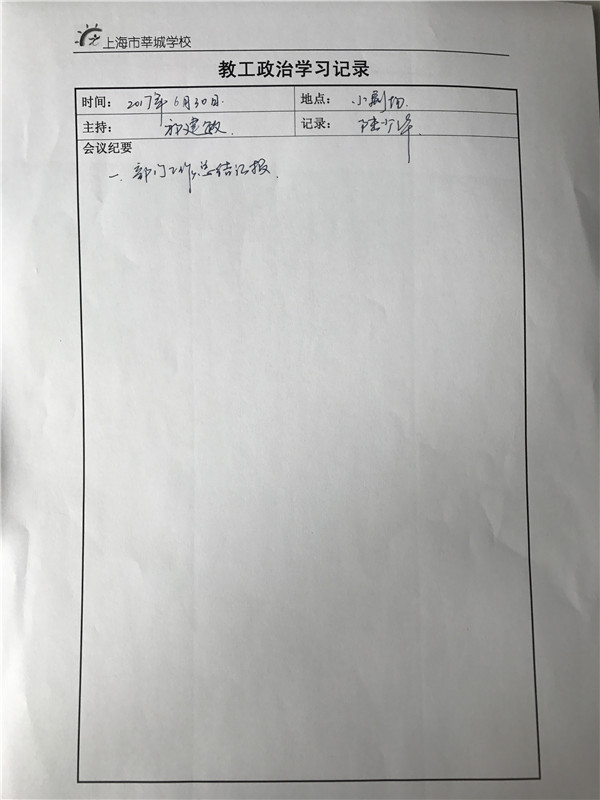 上海市莘城学校
教工政治学习记录
时间： 2017年6月30日. 地点： 小剧场
主持： 祁建敏. 记录：
会议纪要
一. 部门工作总结汇报.